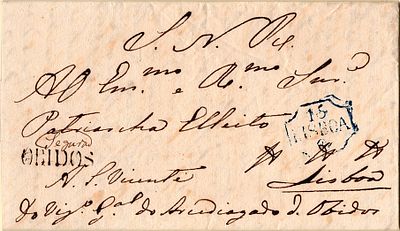 S. N. R.
Ao Em.mo e R.mo Snr.
Patriarcha Elleito
Segura
OBIDOS
15
LISBOA
A. S. Vicente
Lisboa
Do Vig.º G.al do Arcediagado d. Obidos